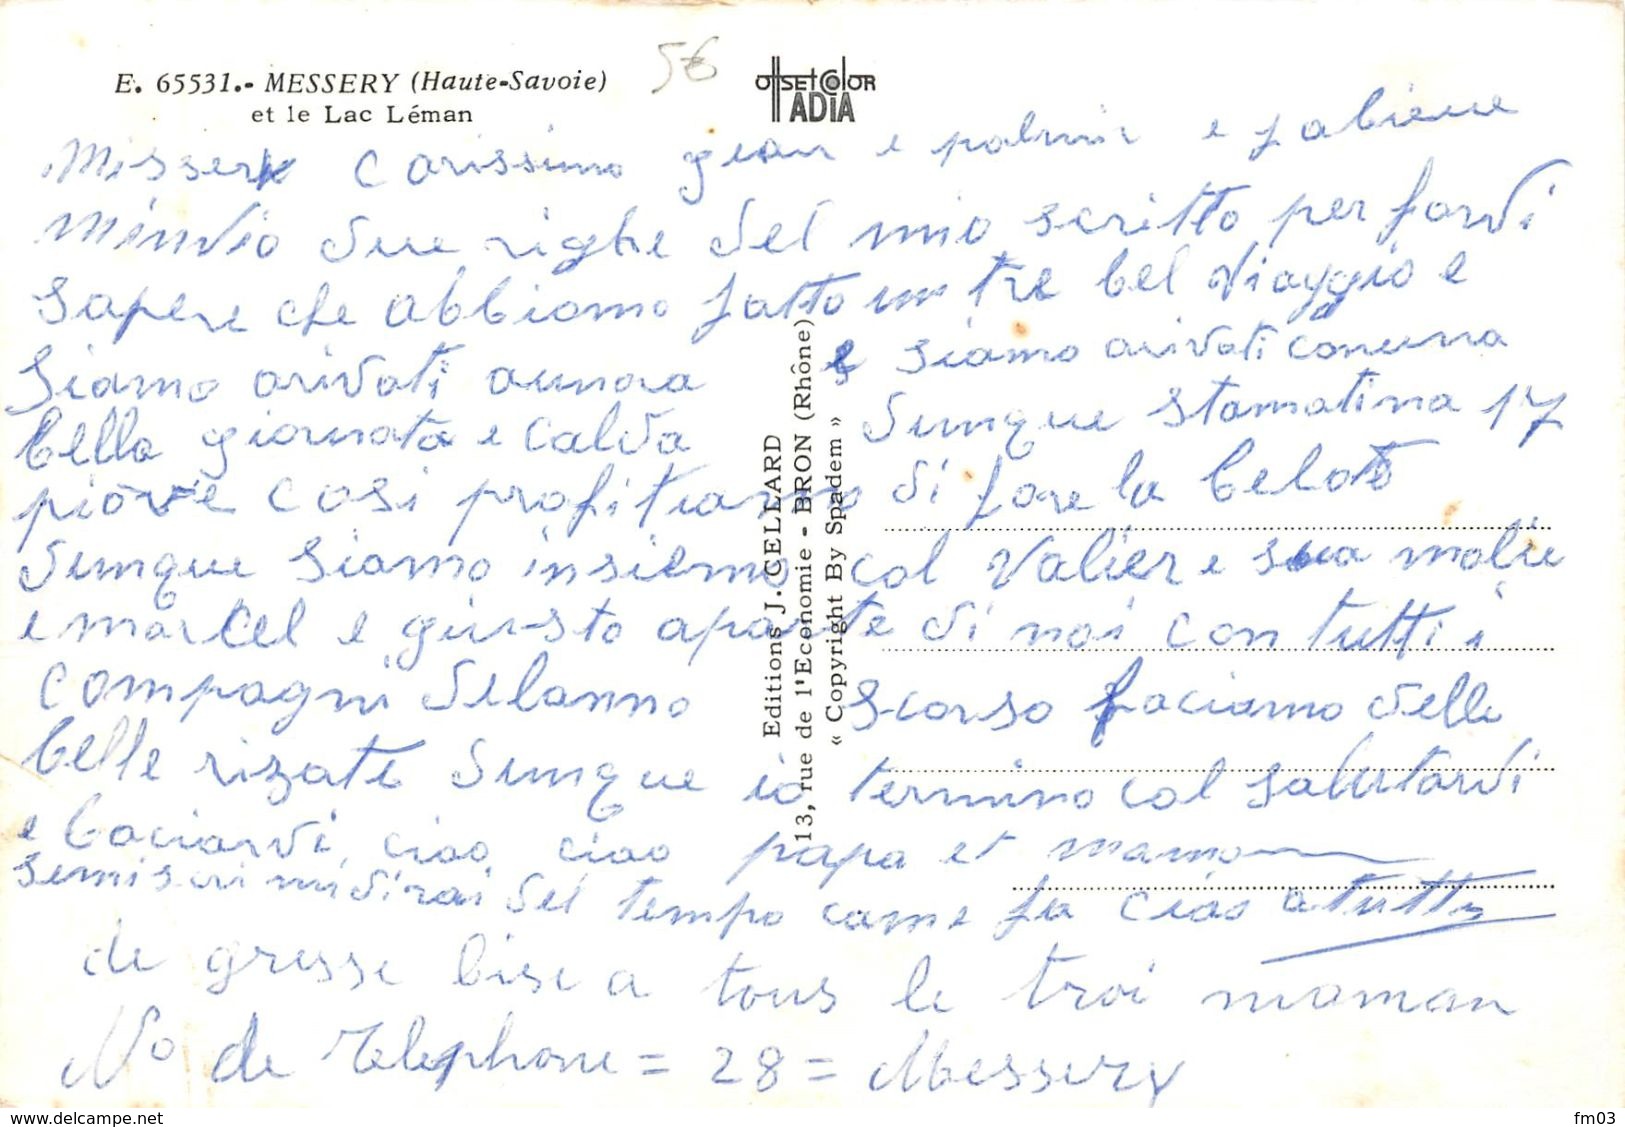 E. 65531.- MESSERY (Haute-Savoie)
et le Lac Léman
5€
OffsetColor
ADIA
Missery Carissimo gian e palmir e fabiene
minvio due righe del mio scritto per fardi
sapere che abbiamo fatto un tre bel viaggio e
siamo arivati aunora e siamo arivati conuna
bella giornata e calda dunque stamatina 17
piove cosi profitiamo di fare la belote
dunque siamo insiemo col Valier e sua molie
e marcel e giusto aparte di noi con tutti i
compagni delanno scorso faciamo delle
belle rizate dunque io termino col salutardi
e baciardi, ciao ciao papa et mama
semiscrimidirai del tempo came fa ciao a tutti
de grosse bise a tous le troi maman
No de Telephone = 28 = Messery
Editions J. CELLARD
13, rue de l'Economie - BRON (Rhône)
« Copyright By Spadem »
www.delcampe.net
fm03